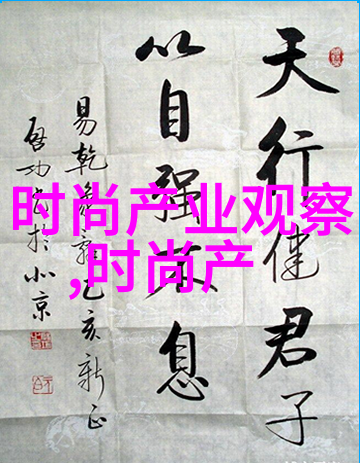 天行健君子
以自强不息
易乾象辞乙亥新正
启功书于北京
时尚产业观察
,时尚产